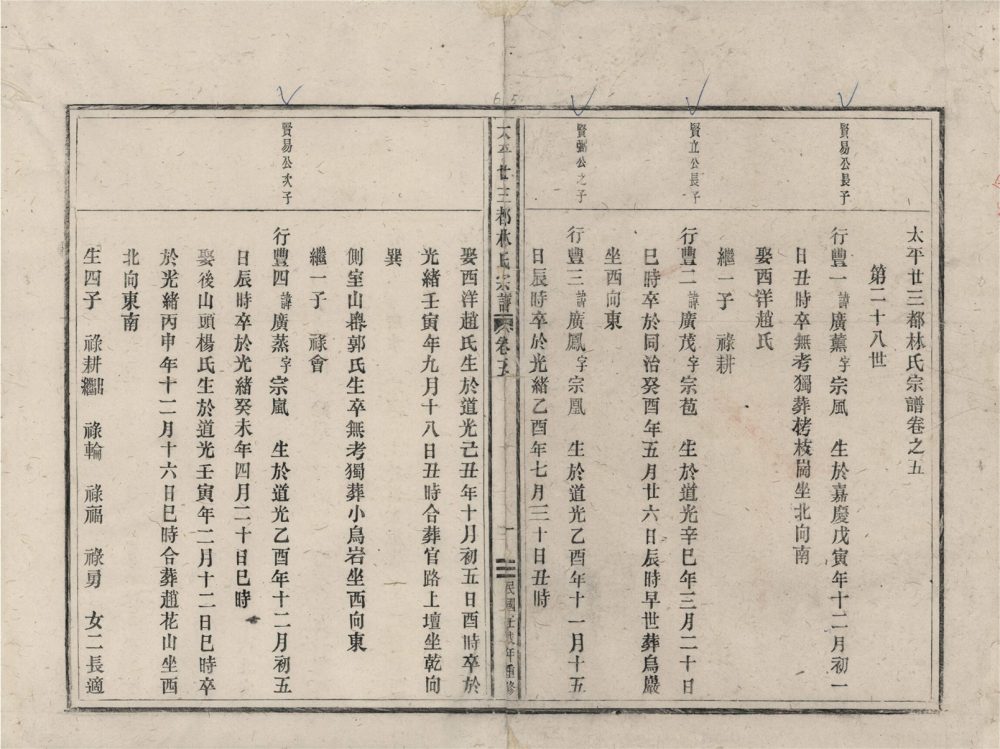 太平廿三都林氏宗譜卷之五
第二十八世
賢易公長子
行豐一諱廣薰字宗風 生於嘉慶戊寅年十二月初一
日丑時卒無考獨葬栲枝崗坐北向南
娶西洋趙氏
繼一子 祿耕
賢立公長子
行豐二諱廣茂字宗苞 生於道光辛巳年三月二十日
巳時卒於同治癸酉年五月廿六日辰時早世葬烏巖
坐西向東
賢弼公之子
行豐三諱廣鳳字宗凰 生於道光乙酉年十一月十五
日辰時卒於光緒乙酉年七月三十日丑時
太平廿三都林氏宗譜 卷五
三
民國壬戌年重修
娶西洋趙氏生於道光己丑年十月初五日酉時卒於
光緒壬寅年九月十八日丑時合葬官路上壇坐乾向
巽
側室山郭氏生卒無考獨葬小烏岩坐西向東
繼一子 祿會
賢易公次子
行豐四諱廣蒸字宗嵐 生於道光乙酉年十二月初五
日辰時卒於光緒癸未年四月二十日巳時
娶後山頭楊氏生於道光壬寅年二月十二日巳時卒
於光緒丙申年十二月十六日巳時合葬趙花山坐西
北向東南
生四子 祿耕出繼 祿輪 祿福 祿勇 女二長適